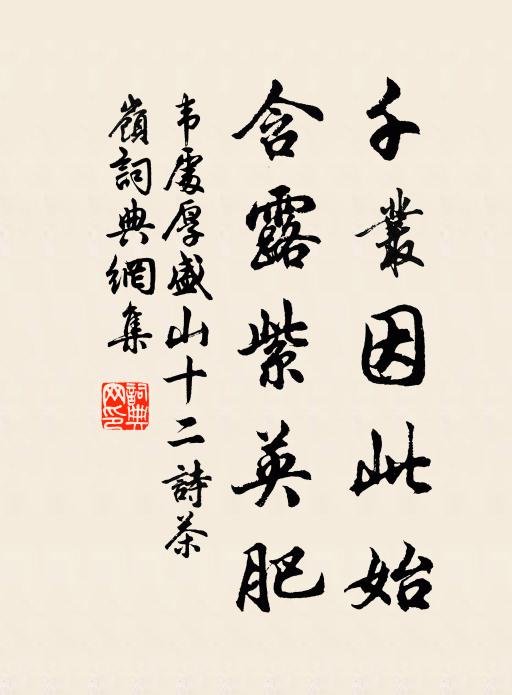 千叢因此始
含露紫英肥
韦處厚盛山十二詩茶
嶺詞典網集
詞典
网印